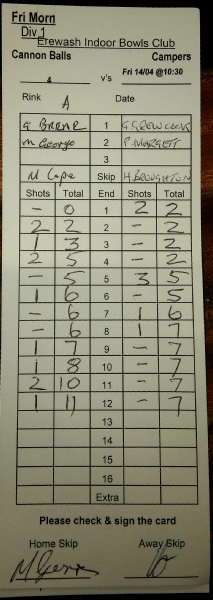 Fri Morn
Div 1
Erewash Indoor Bowls Club
Cannon Balls Campers
4 v's Fri 14/04 @10:30
Rink A Date
G BREAR 1
M George 2 P. MARGETT
3
M Cope Skip H. BROUGHTON
Shots Total End Shots Total
- 0 1 2 2
2 2 2 - 2
1 3 3 - 2
2 5 4 - 2
- 5 5 3 5
1 6 6 - 5
- 6 7 1 6
- 6 8 1 7
1 7 9 - 7
1 8 10 - 7
2 10 11 - 7
1 11 12 - 7
13
14
15
16
Extra
Please check & sign the card
Home Skip Away Skip